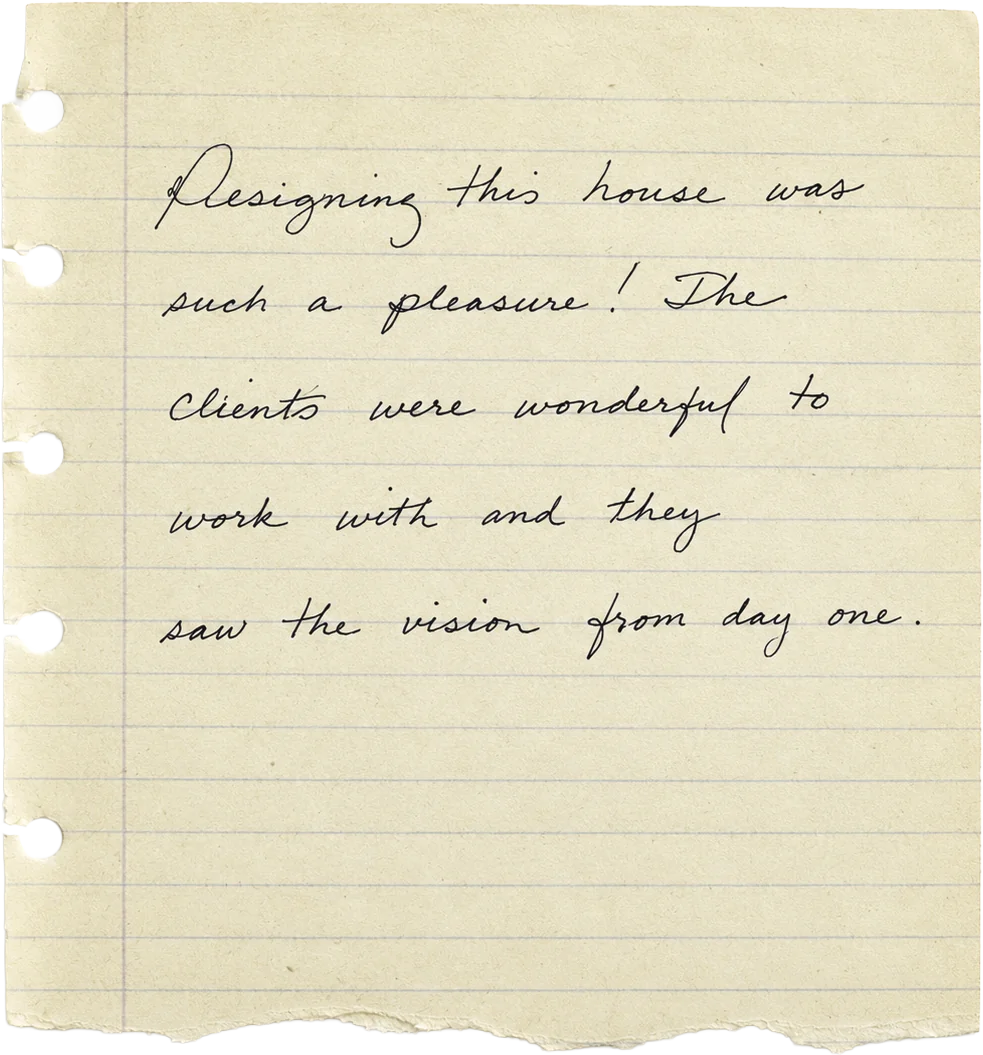 Designing this house was
such a pleasure! The
clients were wonderful to
work with and they
saw the vision from day one.